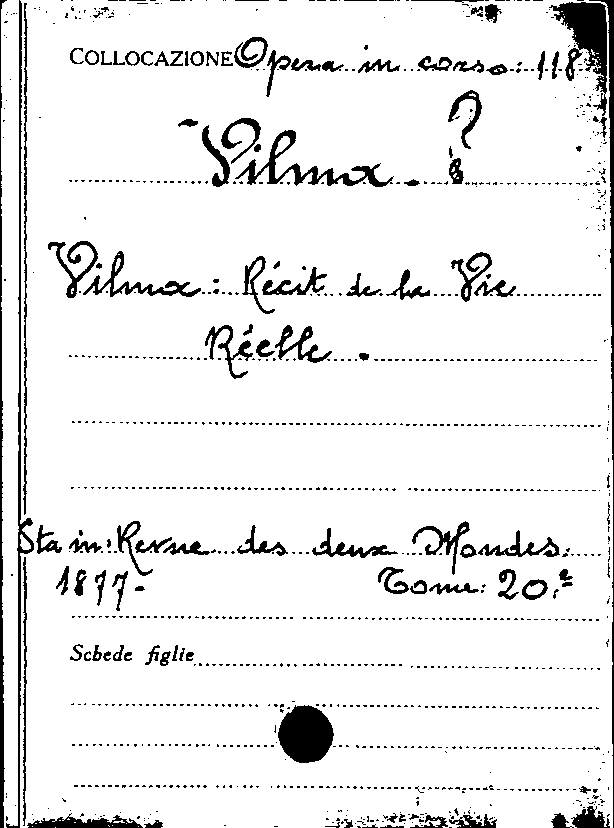 COLLOCAZIONE Opera in corso: 118
Vilma. ?
Vilma: Récit de la Vie
Réelle.
Sta in: Revue des deux Mondes.
1877- Tome: 20.e
Schede figlie